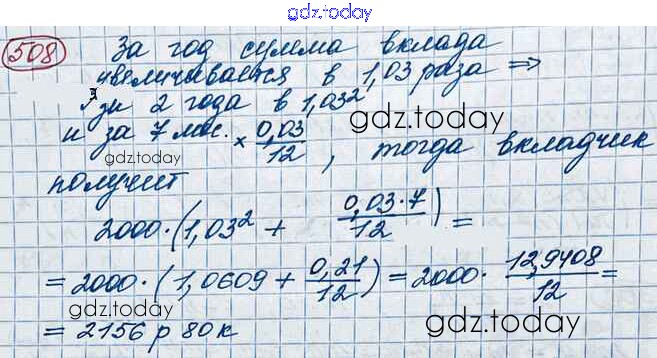 gdz.today
508 За год сумма вклада
увеличивается в 1,03 раза ⇒
за 2 года в 1,03²
gdz.today
и за 7 мес. × 0,03/12, тогда вкладчик
gdz.today
получит
2000·(1,03² + 0,03·7/12) =
= 2000·(1,0609 + 0,21/12) = 2000· 12,9408/12 =
gdz.today
= 2156 р 80 к
gdz.today